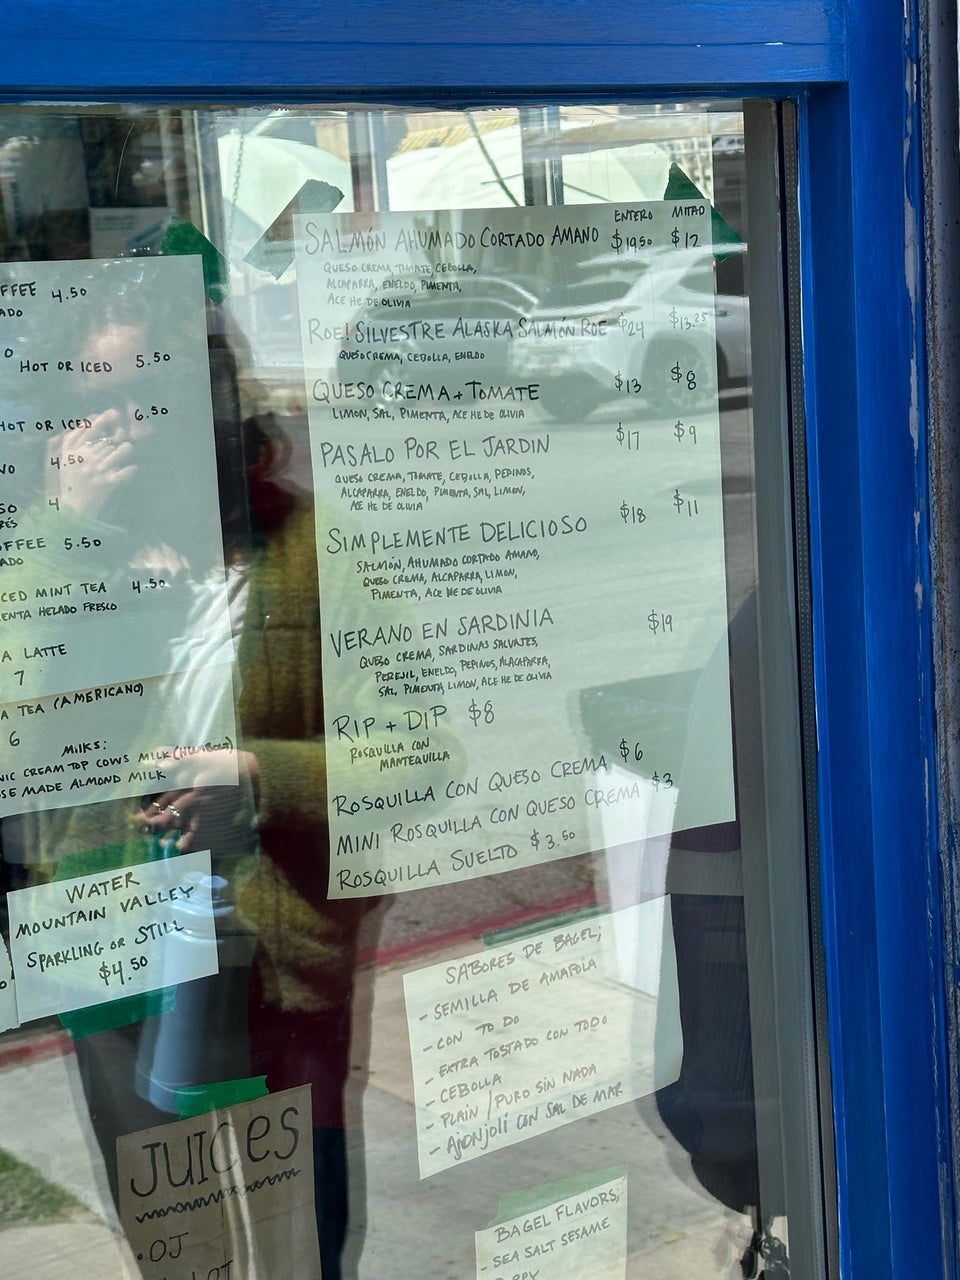 FFEE 4.50
ADO
O
HOT OR ICED 5.50
HOT OR ICED 6.50
VO 4.50
SO 4
RÉS
OFFEE 5.50
ADO
CED MINT TEA 4.50
ENTA HELADO FRESCO
A LATTE
7
A TEA (AMERICANO)
6
MILKS:
NIC CREAM TOP COWS MILK (HUMBOLDT)
SE MADE ALMOND MILK
ENTERO MITAD
SALMÓN AHUMADO CORTADO AMANO $19.50 $12
QUESO CREMA, TOMATE, CEBOLLA,
ALCAPARRA, ENELDO, PIMENTA,
ACE HE DE OLIVIA
ROE! SILVESTRE ALASKA SALMÓN ROE $24 $13.25
QUESO CREMA, CEBOLLA, ENELDO
QUESO CREMA + TOMATE $13 $8
LIMON, SAL, PIMENTA, ACE HE DE OLIVIA
PASALO POR EL JARDIN $17 $9
QUESO CREMA, TOMATE, CEBOLLA, PEPINOS,
ALCAPARRA, ENELDO, PIMENTA, SAL, LIMON,
ACE HE DE OLIVIA
SIMPLEMENTE DELICIOSO $18 $11
SALMÓN, AHUMADO CORTADO AMANO,
QUESO CREMA, ALCAPARRA, LIMON,
PIMENTA, ACE HE DE OLIVIA
VERANO EN SARDINIA $19
QUESO CREMA, SARDINAS SALVAJES,
PEREJIL, ENELDO, PEPINOS, ALACAPARRA,
SAL, PIMENTA, LIMON, ACE HE DE OLIVIA
RIP + DIP $8
ROSQUILLA CON
MANTEQUILLA
ROSQUILLA CON QUESO CREMA $6
MINI ROSQUILLA CON QUESO CREMA $3
ROSQUILLA SUELTO $3.50
WATER
MOUNTAIN VALLEY
SPARKLING OR STILL
$4.50
SABORES DE BAGEL;
- SEMILLA DE AMAPOLA
- CON TO DO
- EXTRA TOSTADO CON TODO
- CEBOLLA
- PLAIN / PURO SIN NADA
- AJONJOLI CON SAL DE MAR
JUICES
• OJ
BAGEL FLAVORS;
- SEA SALT SESAME